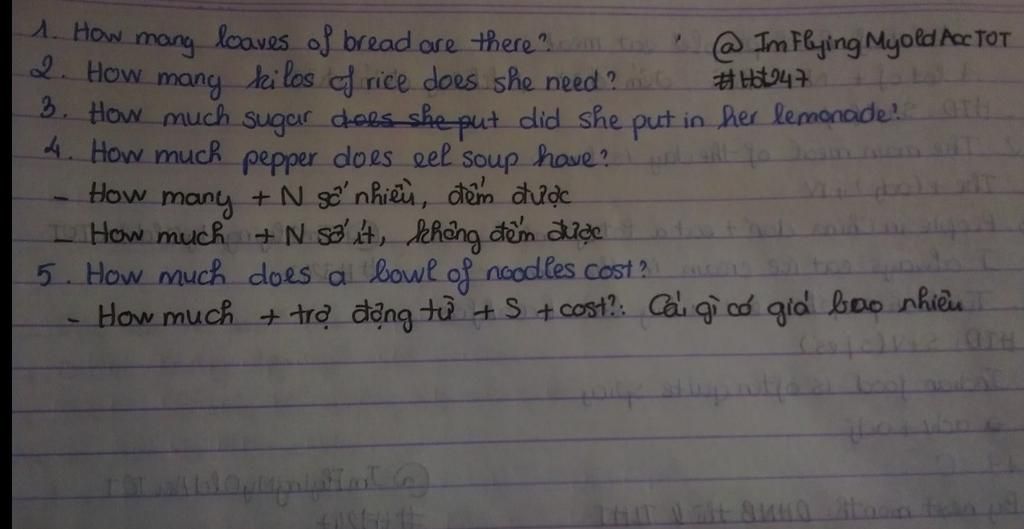 1. How many loaves of bread are there? @ImFlyingMyOldAccTOT
2. How many kilos of rice does she need? #Hst247
3. How much sugar does she put did she put in her lemonade?
4. How much pepper does eel soup have?
- How many + N số nhiều, đếm được
- How much + N số ít, không đếm được
5. How much does a bowl of noodles cost?
- How much + trợ động từ + S + cost?: Cái gì có giá bao nhiêu